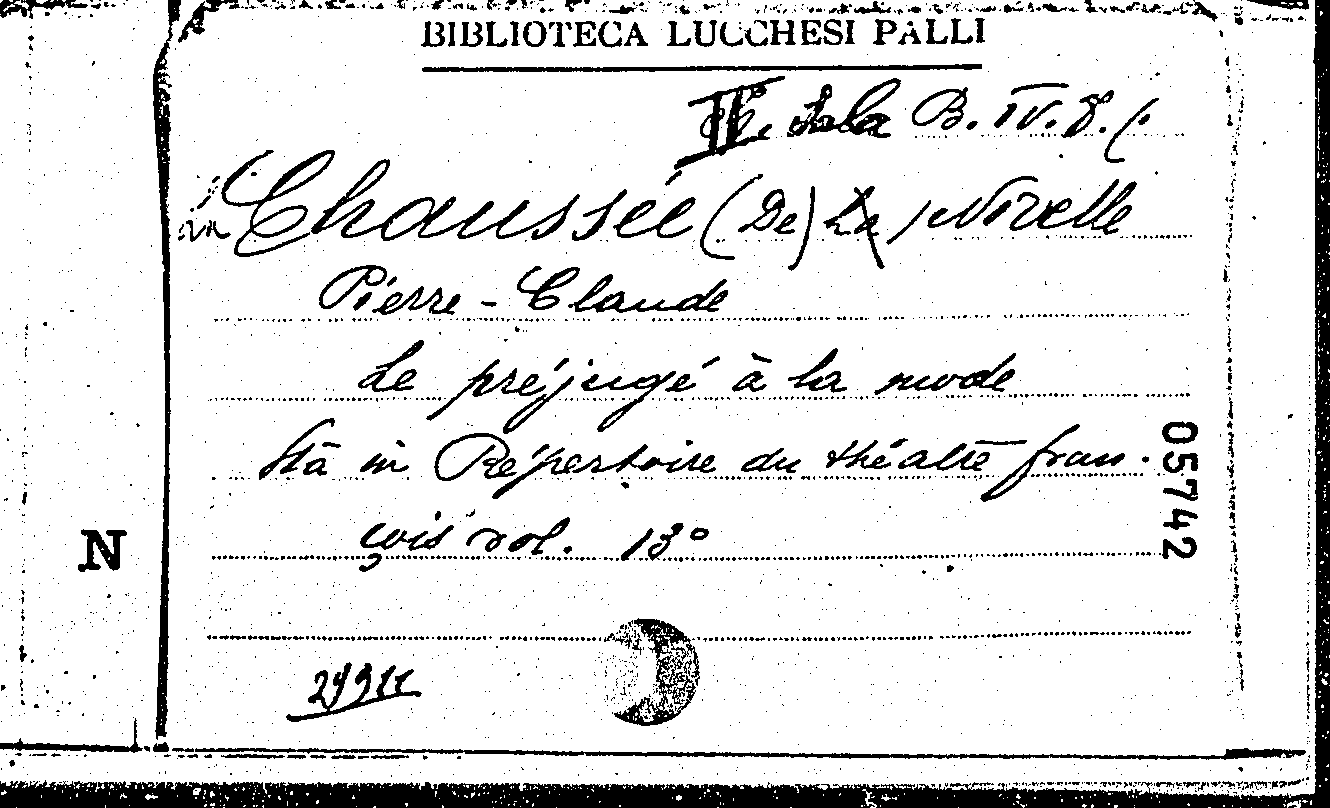 BIBLIOTECA LUCCHESI PALLI
II. Sala B. IV. 8. (.
Chaussée (De) La, Nivelle
Pierre-Claude
Le préjugé à la mode
Sta in Répertoire du théatre fran-
çois vol. 13°
05742
N